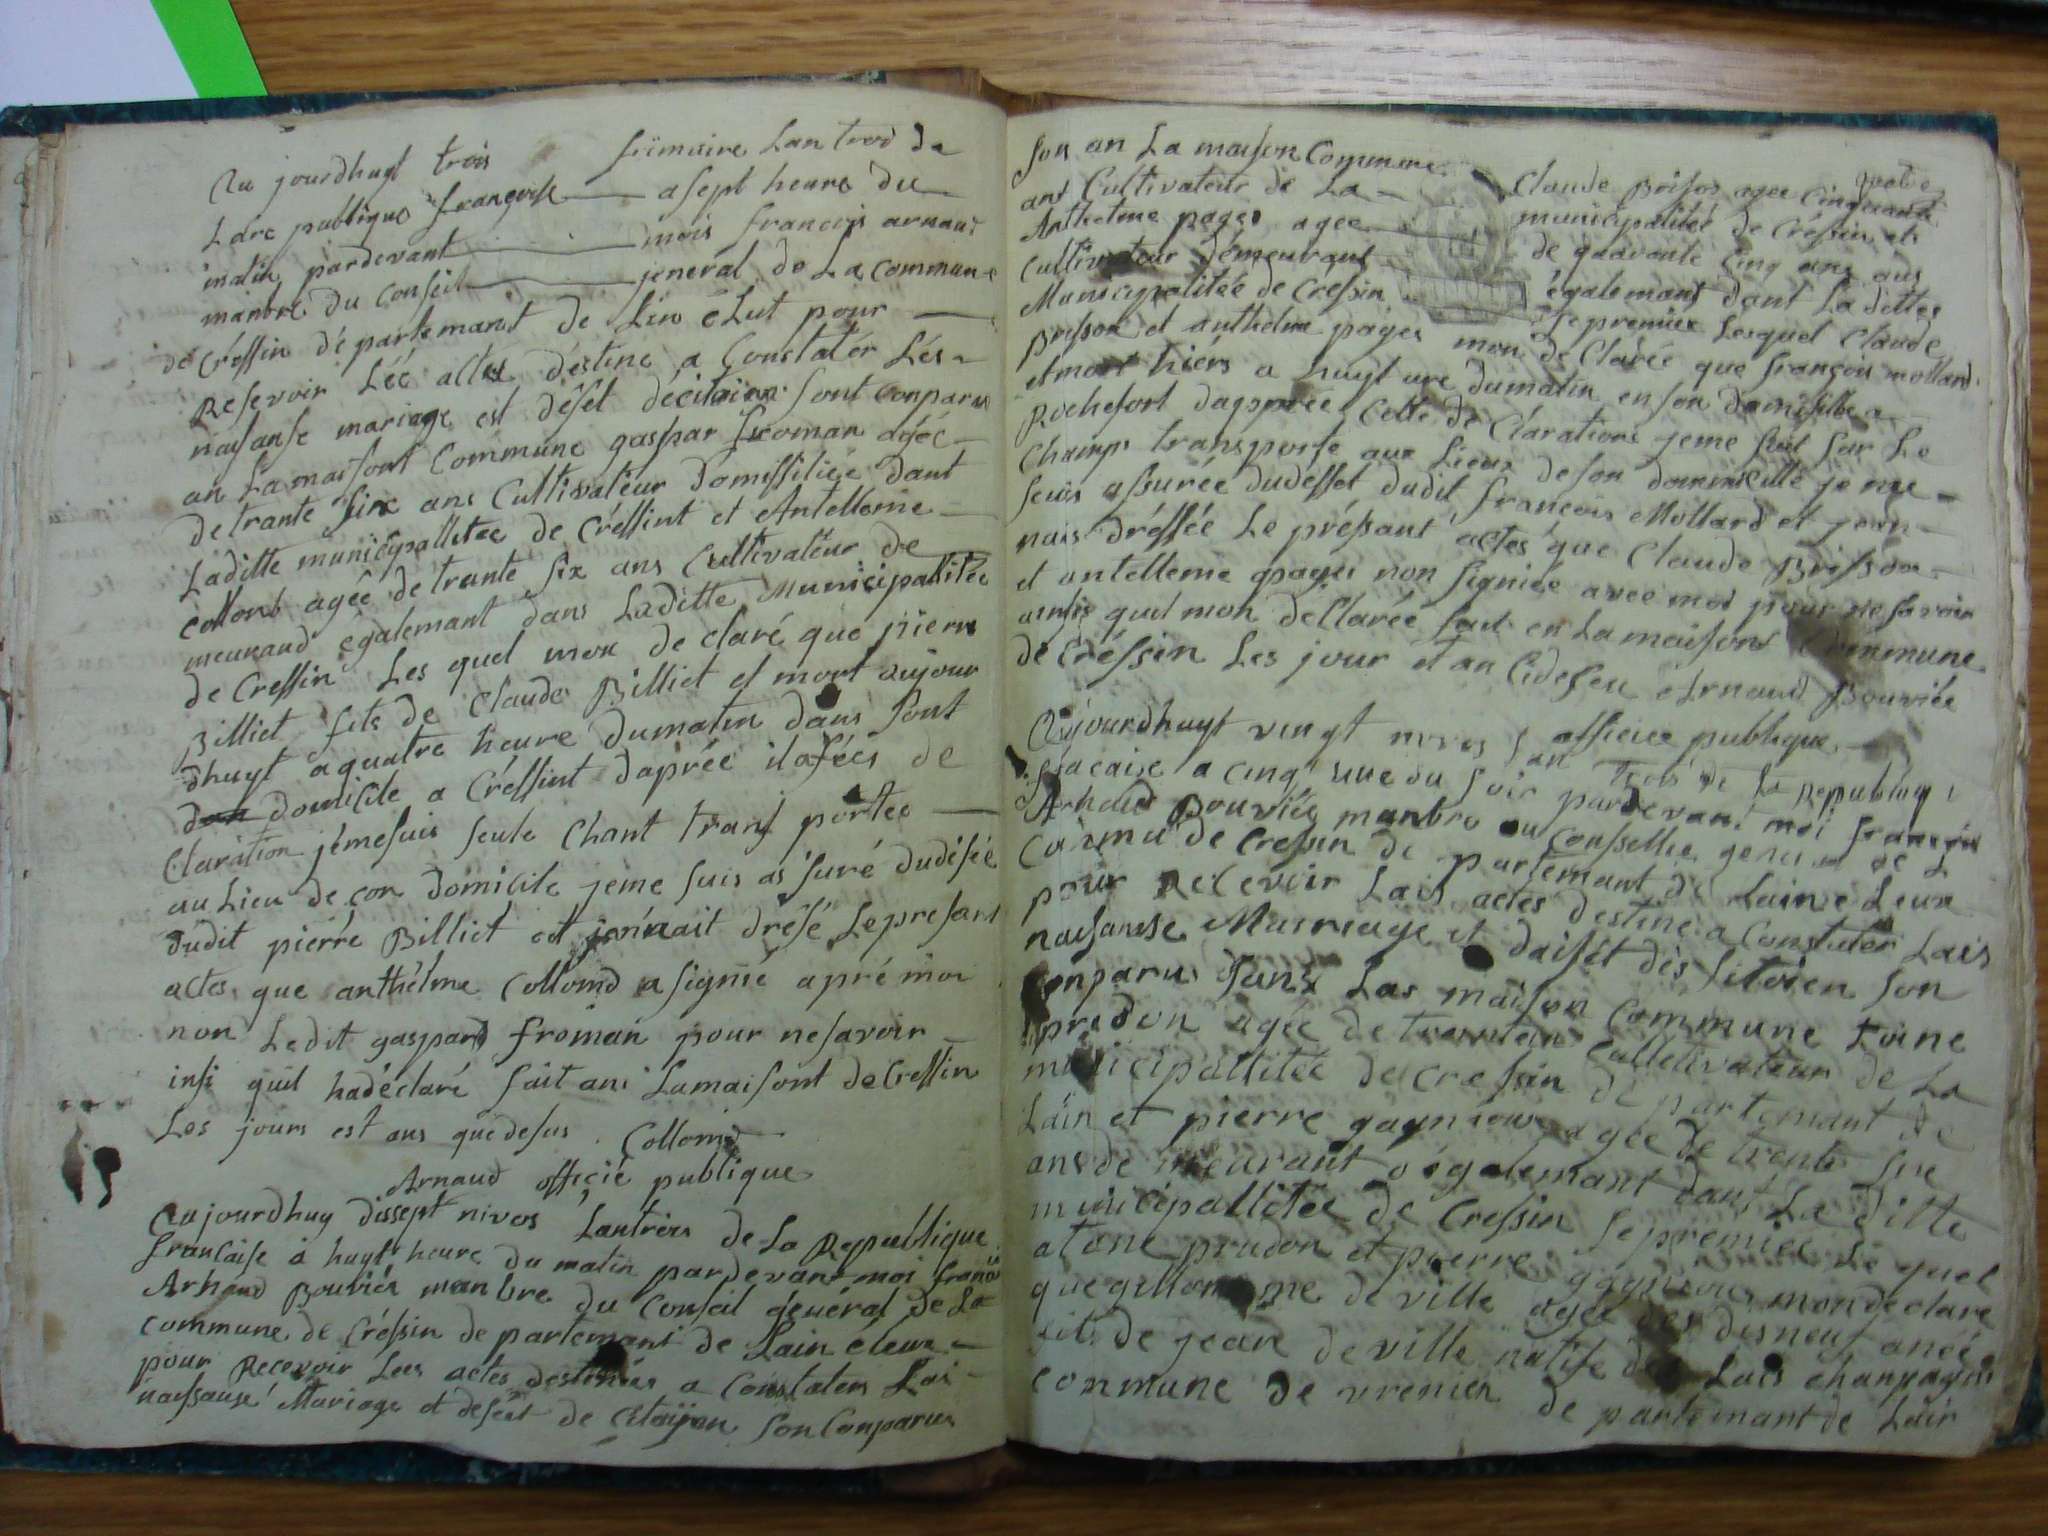 Au jourdhuyt trois frimaire Lan trois de
Lare publique françoise a sept heure du
matin pardevant mois françois arnaud
manbre du conseil jeneral de La commune
de Créssin départemant de Lin élut pour
Resevoir Léé actes déstine a Constatér Lés
naisanse mariage est déset décitoien sont Conparu
an La maisont Commune gaspar froman agéé
de trante six ans Cultivateur domissiliée dant
Laditte municypallitée de Créssint et Antelleme
collomb agée de trante six ans Cultivateur de
meurand égalemant dans Laditte Municipallitée
de Cressin Les quel mon de claré que pierre
Billiet fils de Claude Billiet es mort aujour
dhuyt a quatre heure dumatin dans sont
domicile a Créssint daprée
Claration jemesuis seule Chant trans portée
au Lieu de çon domicile jeme suis as suré dudésée
dudit pierre Billiet et dresé Le presant
actes que anthélme Collomd a signié apré moi
non Ledit gaspard froman pour nesavoir
insi quil hadéclaré fait ani Lamaisont de Cressin
Les jours est ans quedesus Collomd
Arnaud officié publique
Aujourdhuy dissept nivos Lantrois de La Republique
françaisse à huyt heure du matin pardevant moi francois
Arnaud Bouviér manbre du Conseil général de La
commune de Créssin de partemant de Lain éleux
pour Recevoir Lees actes destinés a Constaters Lai
naissanse Mariage et deséet de Citoÿen son Conparus
son an La maison Commune Claude Brison agee cinquante
ans Cultivateur de La municipalitée de Créssin et
Anthelme pages agee de quarante cinq ans aus
cultivateur démeurant égalemant dant La dittes
Municypalitée de Cressin Le premiér Lesquel Claude
Brisson et anthelme pages mon de Clarée que françois mollard
et mort hiérs a huyt ure dumatin en son domisille a
Rochefort dapprée Cette de Claration jeme suit sur Le
Champ transporse aux Lieux de son dommicille je me
suis assurée dudesset dudit francois Mollard et jean
nais dréssée Le préssant actes que Claude Brisson
et antelleme pages non signiée avec moi pour ne savoir
ainsis quil mon dellarée fait en La maisons Commune
de Créssin Les jour et an Cidesseu Arnaud Bouviée
officiée publique
Aujourdhuyt vingt nivos Lan trois de La Republique
a cinq uure du soir pardevant moi françois
Arnaud Bouviér manbre du Consellie general de L
Comnu de Cressin de partemant de Laine Leux
pour Recevoir Lais actes destine a Constater Lais
naisansse Marriage et daisét dés sitoien son
conparu dans Las maison Commune toine
prudon agée de trantein Cullitivateur de La
municipallitée de Cressin de partemant de
Lain et pierre gagnieux agée de trente sie
ans de meurant égalemant dans La ditte
municipallitée de Cressin Le premier Le quel
atone prudon et pierre gagnieux mon de clare
que gillomme de ville agée des disneuf aneé
fils de jean de ville natife des Lais chanpagnis
commune de vrenier de partemant de Lair